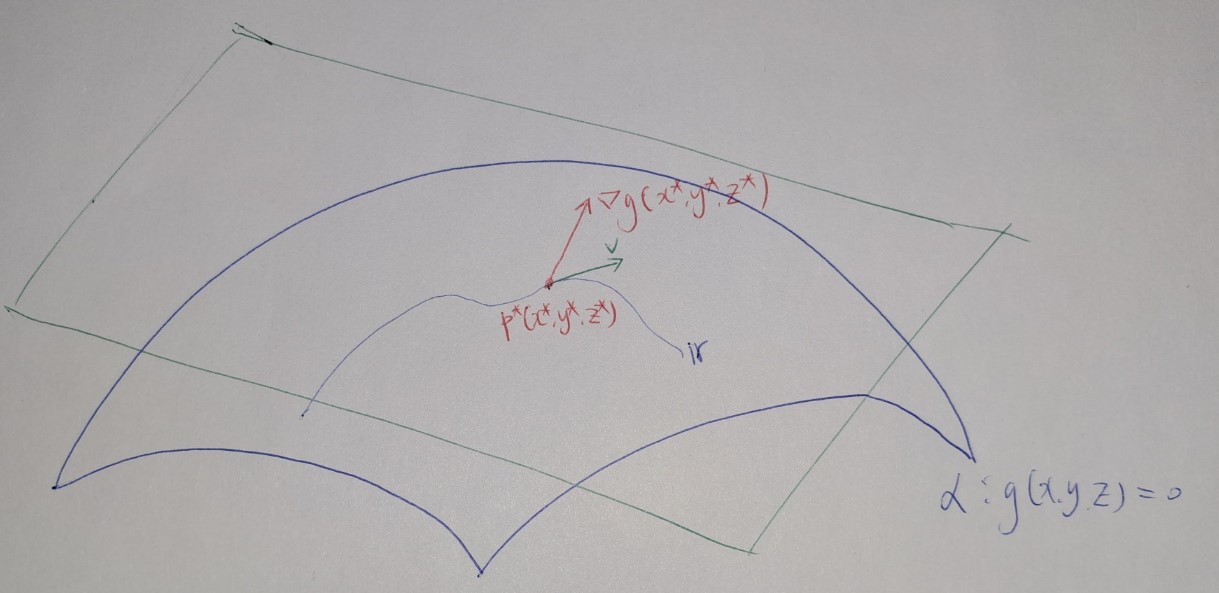 ∇g(x*,y*,z*)
v
p*(x*,y*,z*)
r
α:g(x,y,z)=0